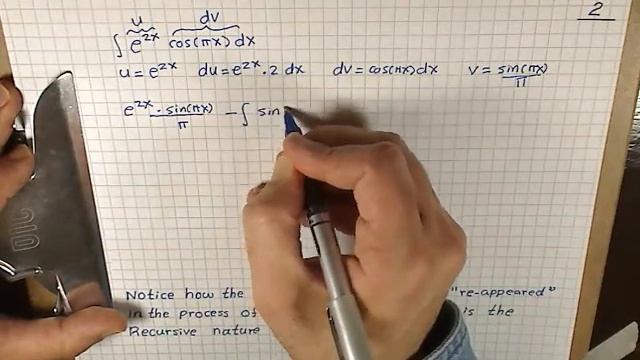 2
u dv
∫ e^{2x} cos(πx) dx
u = e^{2x} du = e^{2x} · 2 dx dv = cos(πx) dx v = sin(πx)/π
e^{2x} · sin(πx)/π − ∫ sin
Notice how the "re-appeared"
in the process of is the
Recursive nature